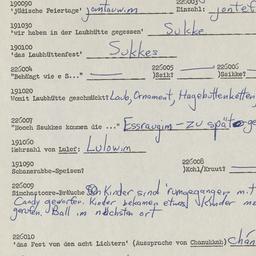 190090 225003
'jüdische Feiertage' jontauwim Einzahl: jontef
191030
'wir haben in der Laubhütte gegessen' Sukke
190100
'das Laubhüttenfest' Sukkes
225004 225005 225006
"Behängt wie e S..." )Szik? )Szikke?
191020
Womit Laubhütte geschmückt? Laub, Ornament, Hagebuttenketten
225007
"Noch Szukkes kommen die ..." Essraugim – zu spät
191060
Mehrzahl von Lulef: Lulowim
191090 225008
Schanzrabbe-Speisen? )Kohl/Kraut?
225009
Simchastoore-Bräuche Kinder sind 'rumgegangen mit
Candy geworfen. Kinder bekamen etwas Kinder
gerufen. Ball im nächsten ort
225010
'das Fest von den acht Lichtern' (Aussprache von Chanukkah)